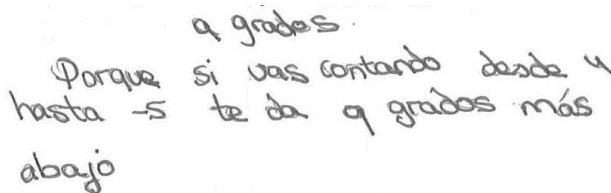 9 grados.
Porque si vas contando desde 4
hasta -5 te da 9 grados más
abajo